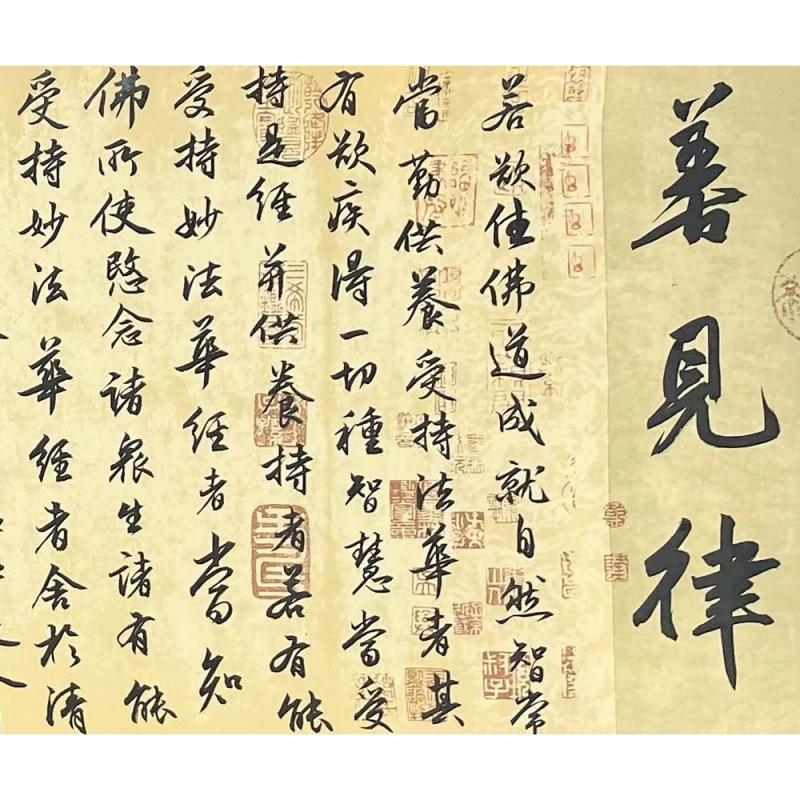 善見律
若欲住佛道成就自然智常
當勤供養受持法華者其
有欲疾得一切種智慧當受
持是經并供養持者若有能
受持妙法華經者當知
佛所使愍念諸眾生諸有能
受持妙法華經者舍於清